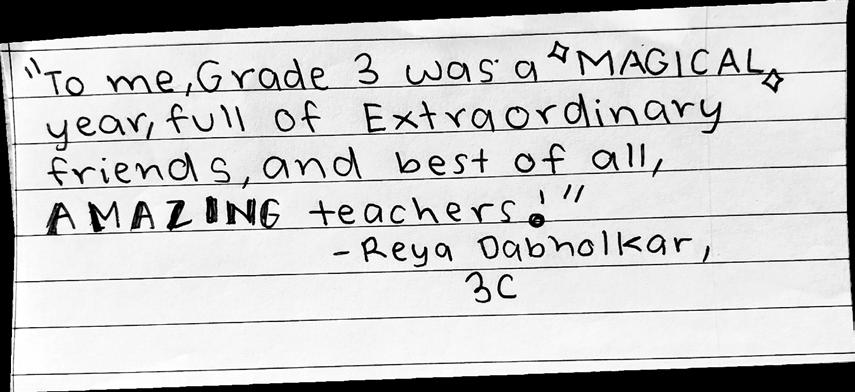 "To me, Grade 3 was a ✧MAGICAL✧
year, full of Extraordinary
friends, and best of all,
AMAZING teachers!"
-Reya Dabholkar,
3C